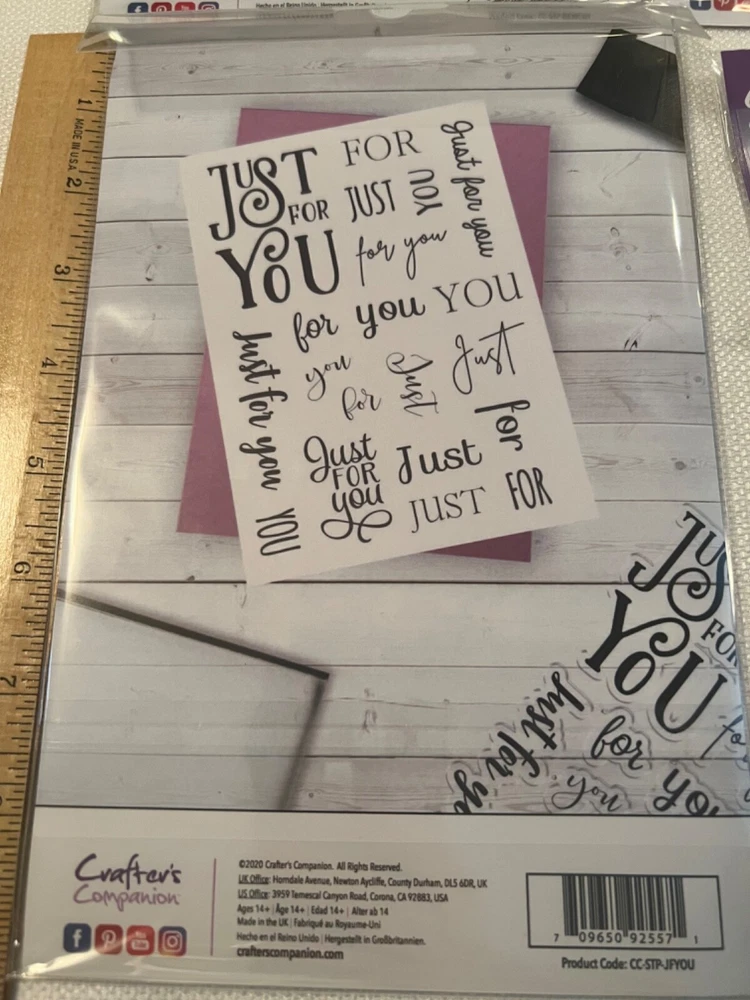 Hecho en el Reino Unido
1
MADE IN U.S.A.
2
3
4
5
6
7
JUST
FOR
YOU
FOR
JUST
YOU
Just for you
for you
for you YOU
Just for you
you
for
Just
Just
for
Just
FOR
you
Just
YOU
JUST
FOR
JUS
FOR
YOU
Just for yo
for yo
you
Crafter's
Companion
©2020 Crafter's Companion. All Rights Reserved.
UK Office: Horndale Avenue, Newton Aycliffe, County Durham, DL5 6DR, UK
US Office: 3959 Temescal Canyon Road, Corona, CA 92883, USA
Ages 14+ | Âge 14+ | Edad 14+ | Alter ab 14
Made in the UK | Fabriqué au Royaume-Uni
Hecho en el Reino Unido | Hergestellt in Großbritannien.
crafterscompanion.com
You Tube
7 09650 92557 1
Product Code: CC-STP-JFYOU